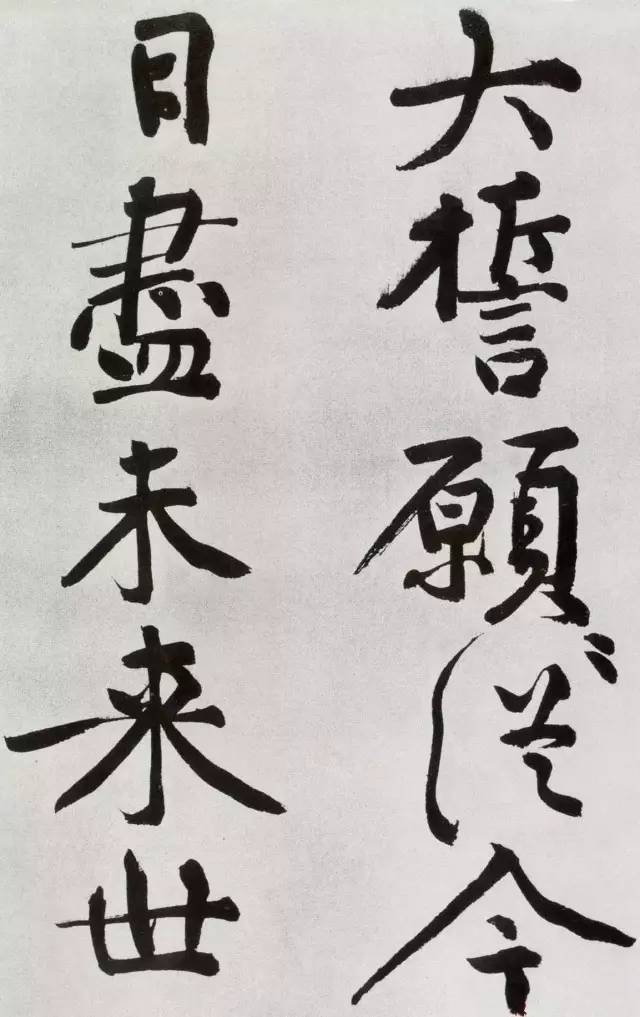 大誓願從今
日盡未来世